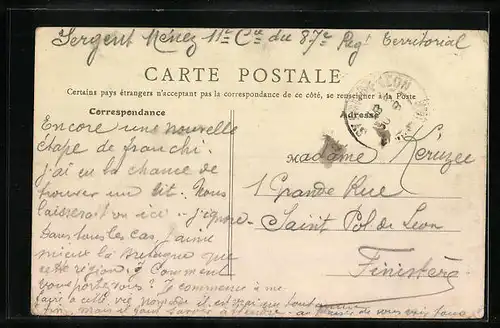 Sergent Ménez 11e Cie du 87e Regt Territorial
CARTE POSTALE
Certains pays étrangers n'acceptant pas la correspondance de ce côté, se renseigner à la Poste
Correspondance
Adresse
Encore une nouvelle
étape de franchi.
j'ai eu la chance de
trouver un lit. Nous
laissera-t-on ici - j'ignore
Dans tous les cas, j'aime
mieux la Bretagne que
cette région. Comment
vous portez vous? Je commence à me
faire à cette vie nomade il est vrai que tout
fin, mais il faut savoir attendre - au
Madame Keruzec
1 Grande Rue
Saint Pol de Leon
Finistère